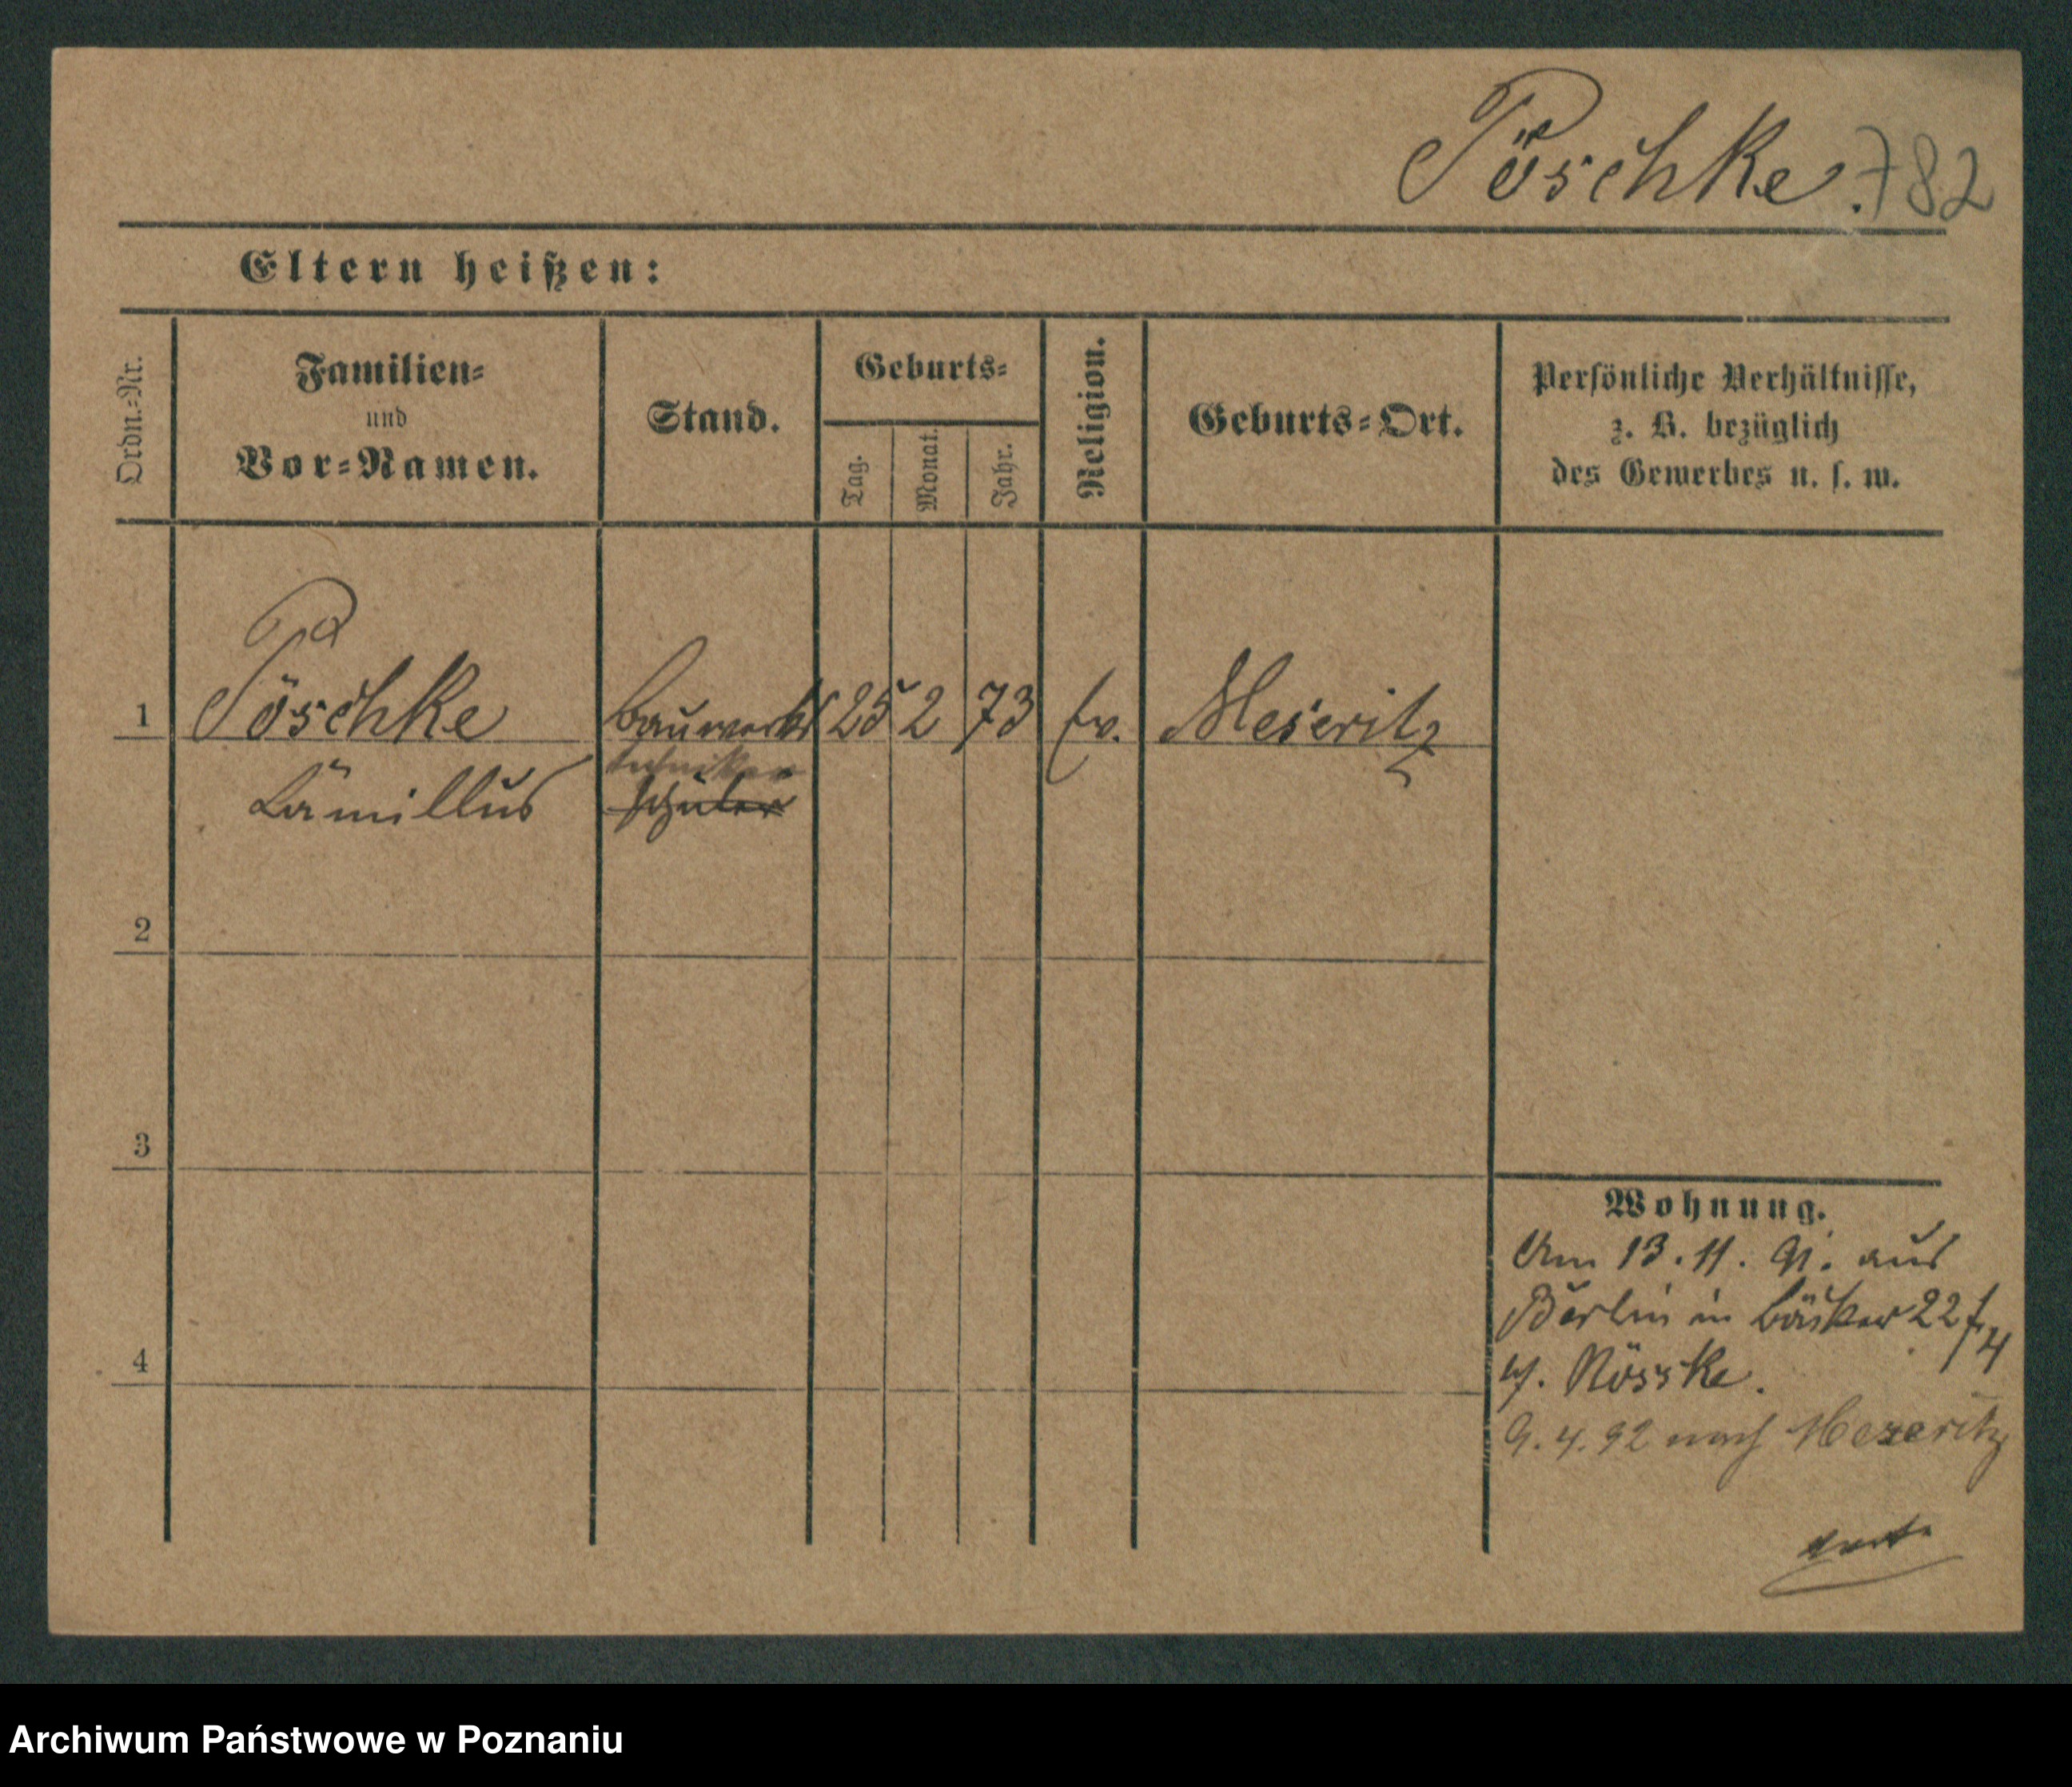 Pöschke. 782
Eltern heißen:
Ordn.-Nr.
Familien-
und
Vor-Namen.
Stand.
Geburts-
Tag.
Monat.
Jahr.
Religion.
Geburts-Ort.
Persönliche Verhältnisse,
z. B. bezüglich
des Gewerbes u. s. w.
1 Pöschke Bauwerks 25 2 73 ev. Meseritz
techniker
Camillus Schüler
2
3
4
Wohnung.
Am 13.11.91. aus
Berlin in Bäcker 22
Nösske.
9.4.92 nach Mezeritz
Archiwum Państwowe w Poznaniu